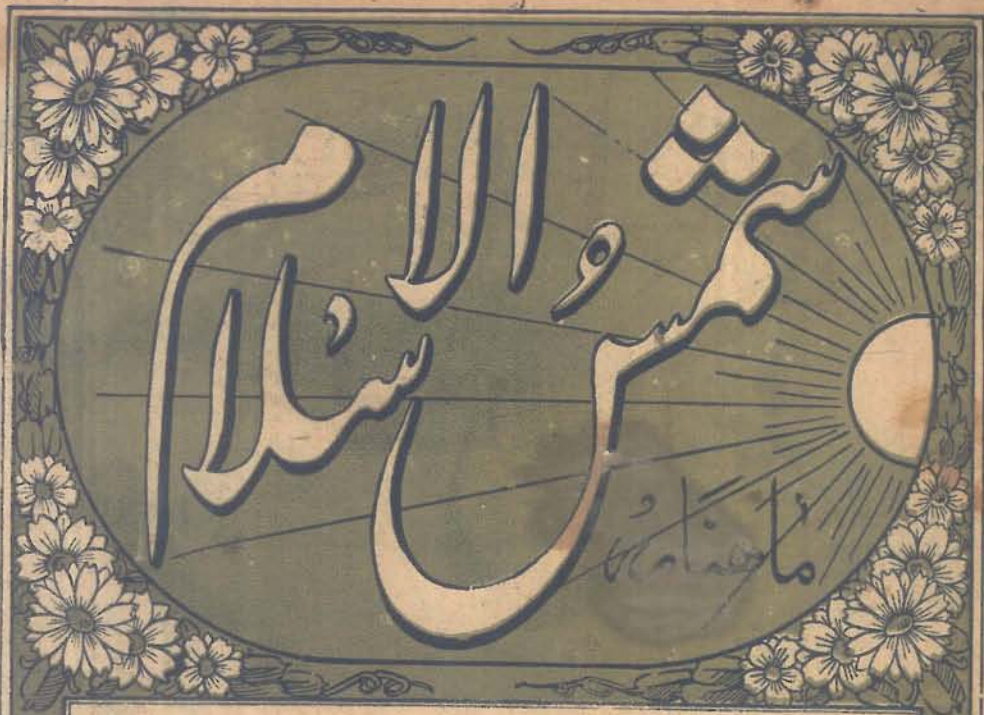 شمسُ الاسلام
ماہنامہ